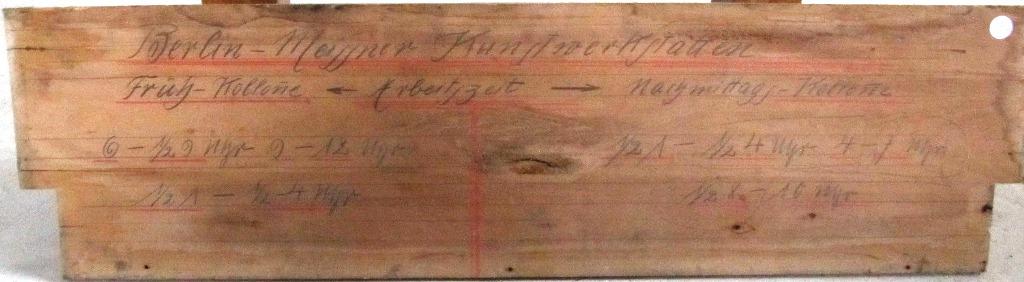 Berlin-Meissner Kunstwerkstätten
Früh-Kollone ← Arbeitszeit → Nachmittags-Kollone
6 - ½ 9 Uhr 9 - 12 Uhr ½ 1 - ½ 4 Uhr 4 - 7 Uhr
½ 1 - ½ 4 Uhr ½ 8 - 10 Uhr